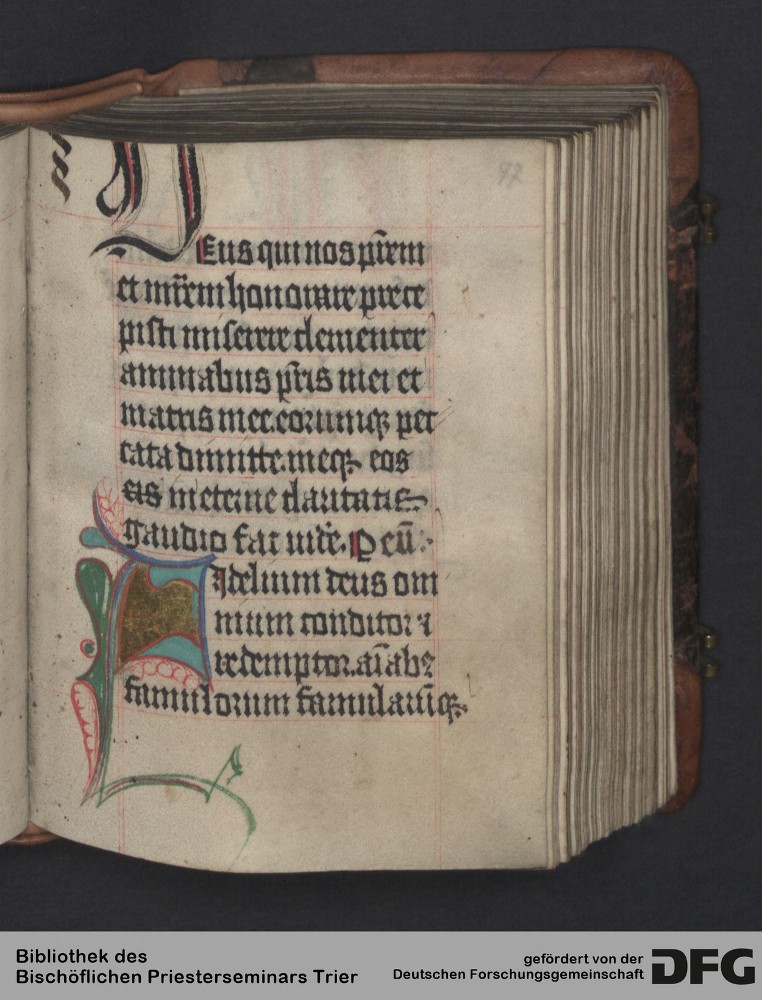 97
Deus qui nos pr̄em
et mr̄em honorare prece
pisti miserere clementer
animabus pr̄is mei et
matris mee.eorumq3 pec
cata dimitte.meq3 eos
eis in eterne claritatis
gaudio fac uide̅.P eu̅
Fidelium deus om
nium conditor ⁊
redemptor.ai̅abꝫ
famulorum famularu̅q3
Bibliothek des
Bischöflichen Priesterseminars Trier
gefördert von der
Deutschen Forschungsgemeinschaft
DFG